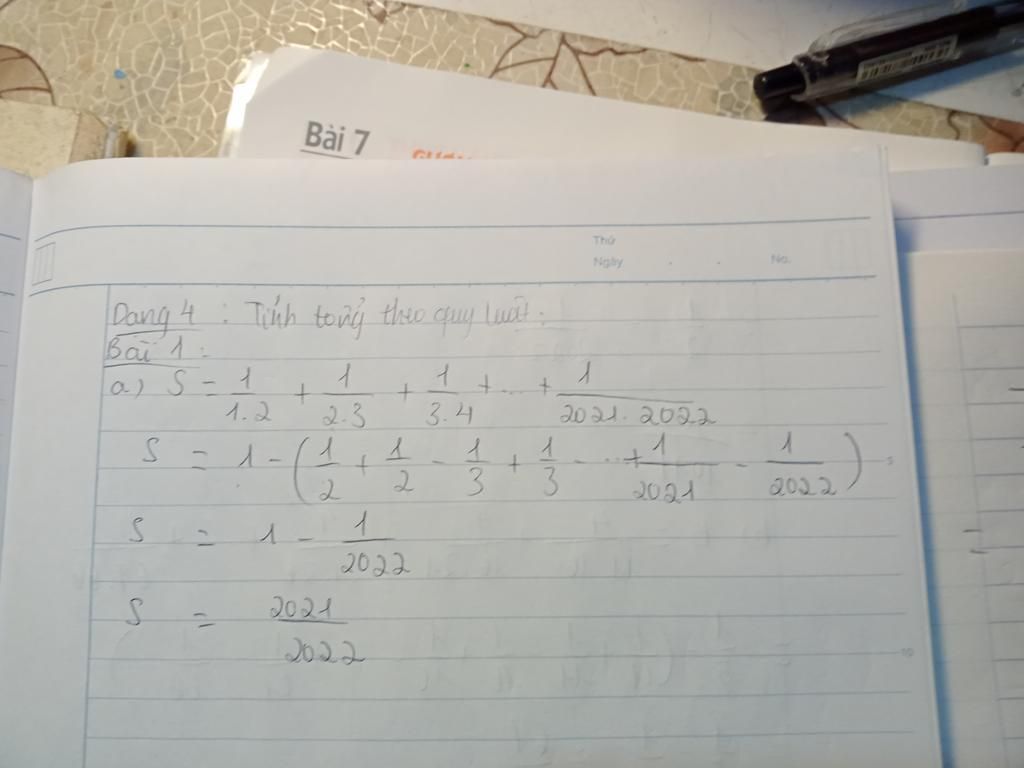 Bài 7
Thứ
Ngày . . No.
Dạng 4 : Tính tổng theo quy luật :
Bài 1 :
a) S = 1/1.2 + 1/2.3 + 1/3.4 + ... + 1/2021.2022
S = 1 - (1/2 + 1/2 - 1/3 + 1/3 - ... + 1/2021 - 1/2022)
S = 1 - 1/2022
S = 2021/2022